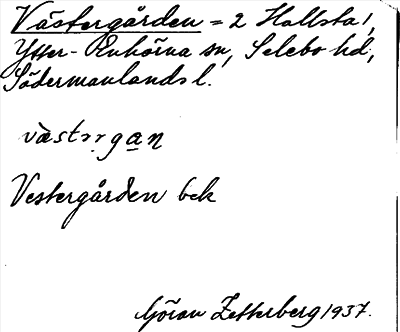 Västergården = 2 Hallsta,
Ytter-Enhörna sn, Selebo hd,
Södermanlands l.
västərgan
Vestergården bek
Göran Zetterberg 1937.